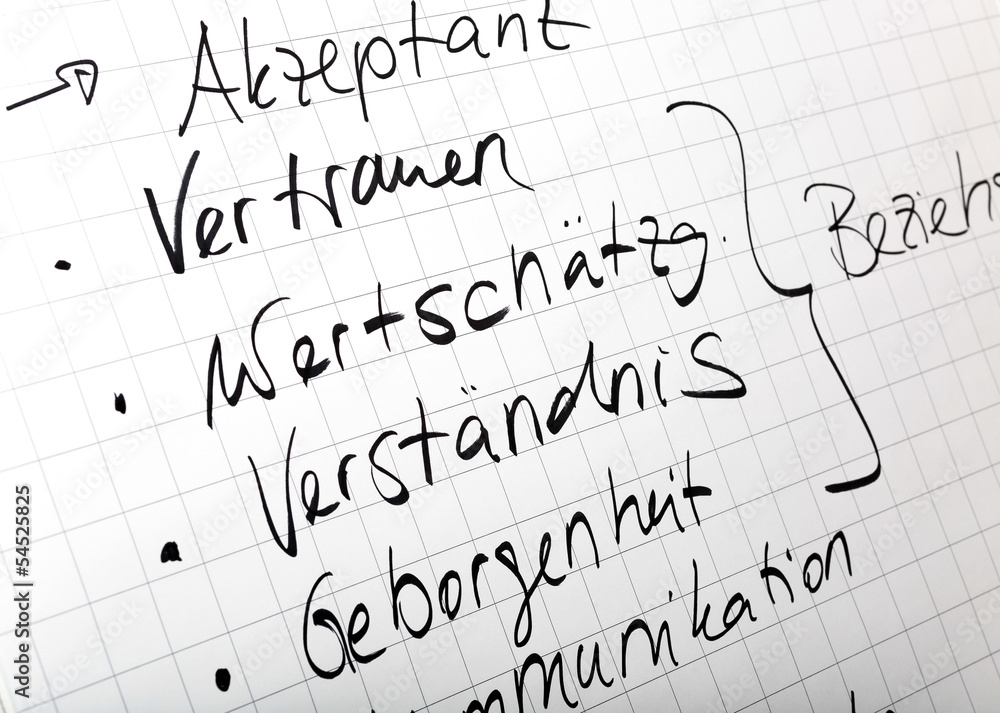 → Akzeptant
• Vertrauen
• Wertschätzg.
• Verständnis
• Geborgenheit
mmunikation
Beziehs
Adobe Stock | #54525825